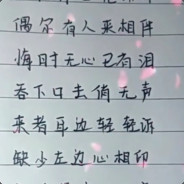 偶尔有人来相伴
悔时无心已有泪
吞下口去俏无声
来者耳边轻轻诉
缺少左边心相印